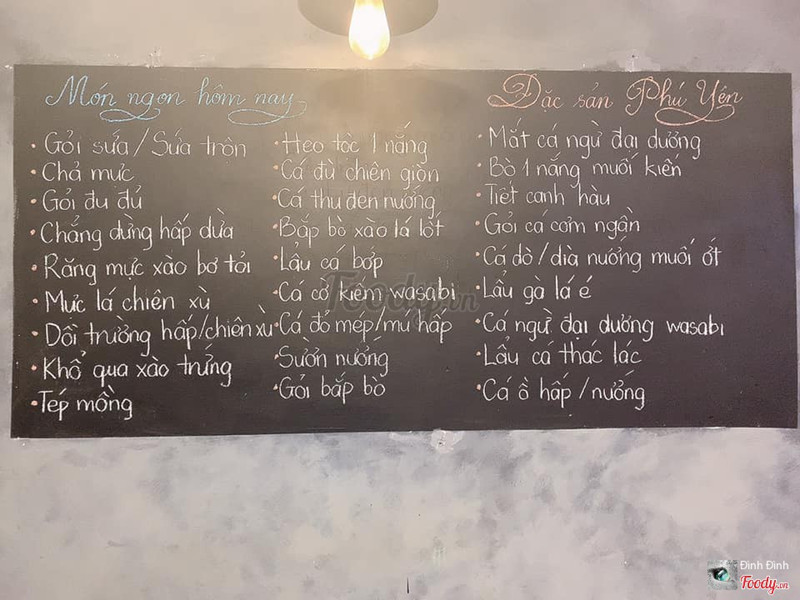 Món ngon hôm nay
• Gỏi sứa/Sứa tròn
• Chả mực
• Gỏi đu đủ
• Chẳng dừng hấp dừa
• Răng mực xào bơ tỏi
• Mực lá chiên xù
• Dồi trường hấp/chiên xù
• Khổ qua xào trứng
• Tép mồng
• Heo tộc 1 nắng
• Cá đù chiên giòn
• Cá thu đen nướng
• Bắp bò xào lá lốt
• Lẩu cá bớp
• Cá cờ kiếm wasabi
• Cá đỏ mép/mú hấp
• Sườn nướng
• Gỏi bắp bò
Đặc sản Phú Yên
• Mắt cá ngừ đại dương
• Bò 1 nắng muối kiến
• Tiết canh hàu
• Gỏi cá cơm ngần
• Cá dò/dìa nướng muối ớt
• Lẩu gà lá é
• Cá ngừ đại dương wasabi
• Lẩu cá thác lác
• Cá ồ hấp/nướng
Foody.vn
Đinh Đinh
Foody.vn